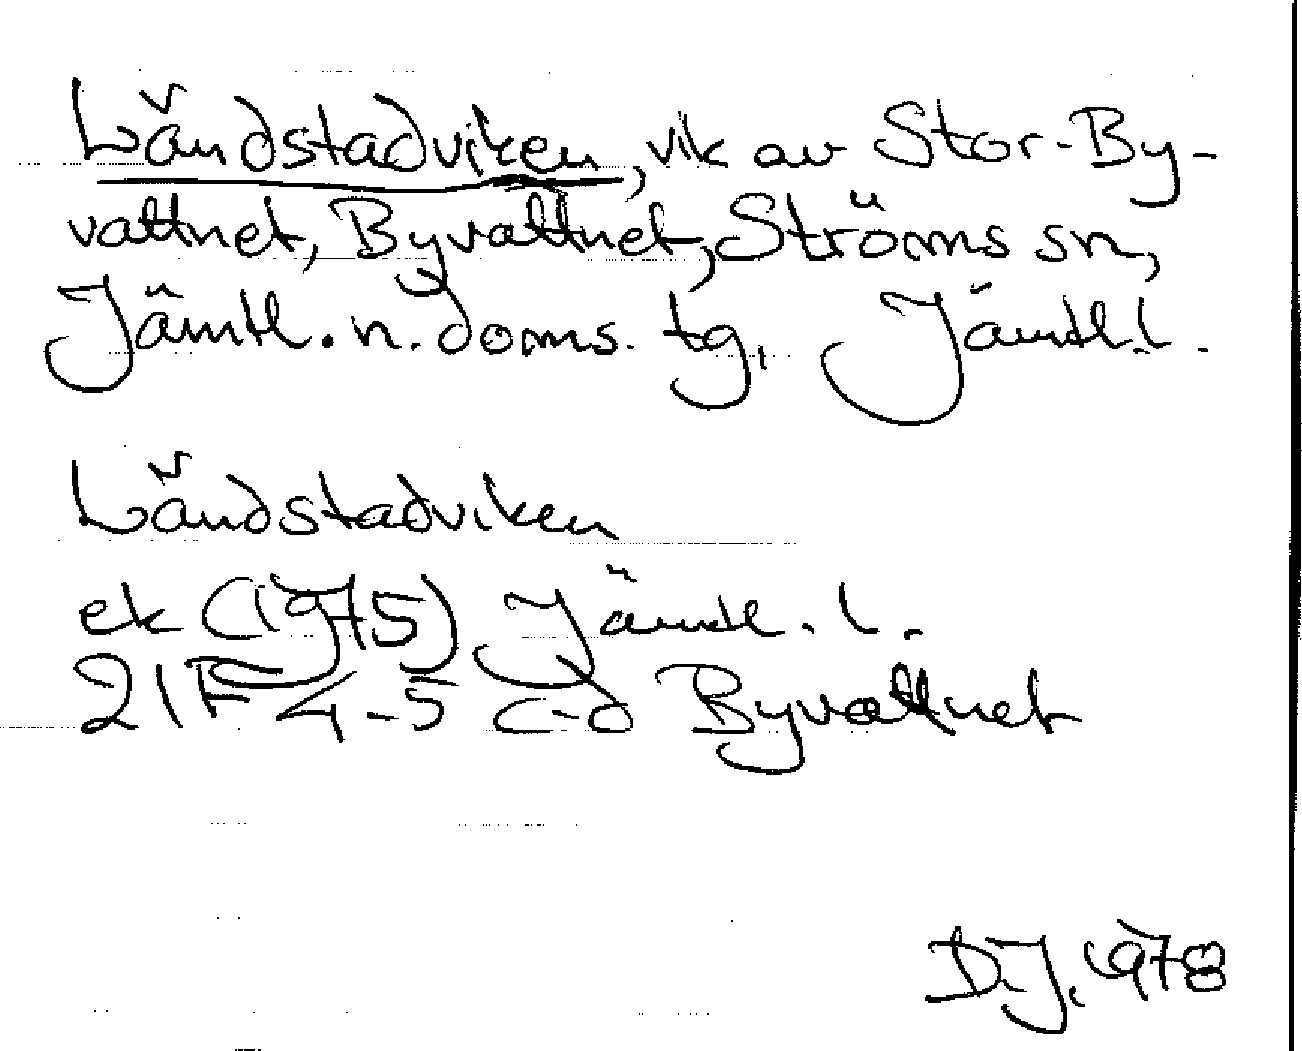 Ländstadviken, vik av Stor-By-
vattnet, Byvattnet, Ströms sn,
Jämtl. n. doms. tg. Jämtl. l.
Ländstadviken
ek (1975) Jämtl. l.
21F 4-5 c-d Byvattnet
D.J. 1978